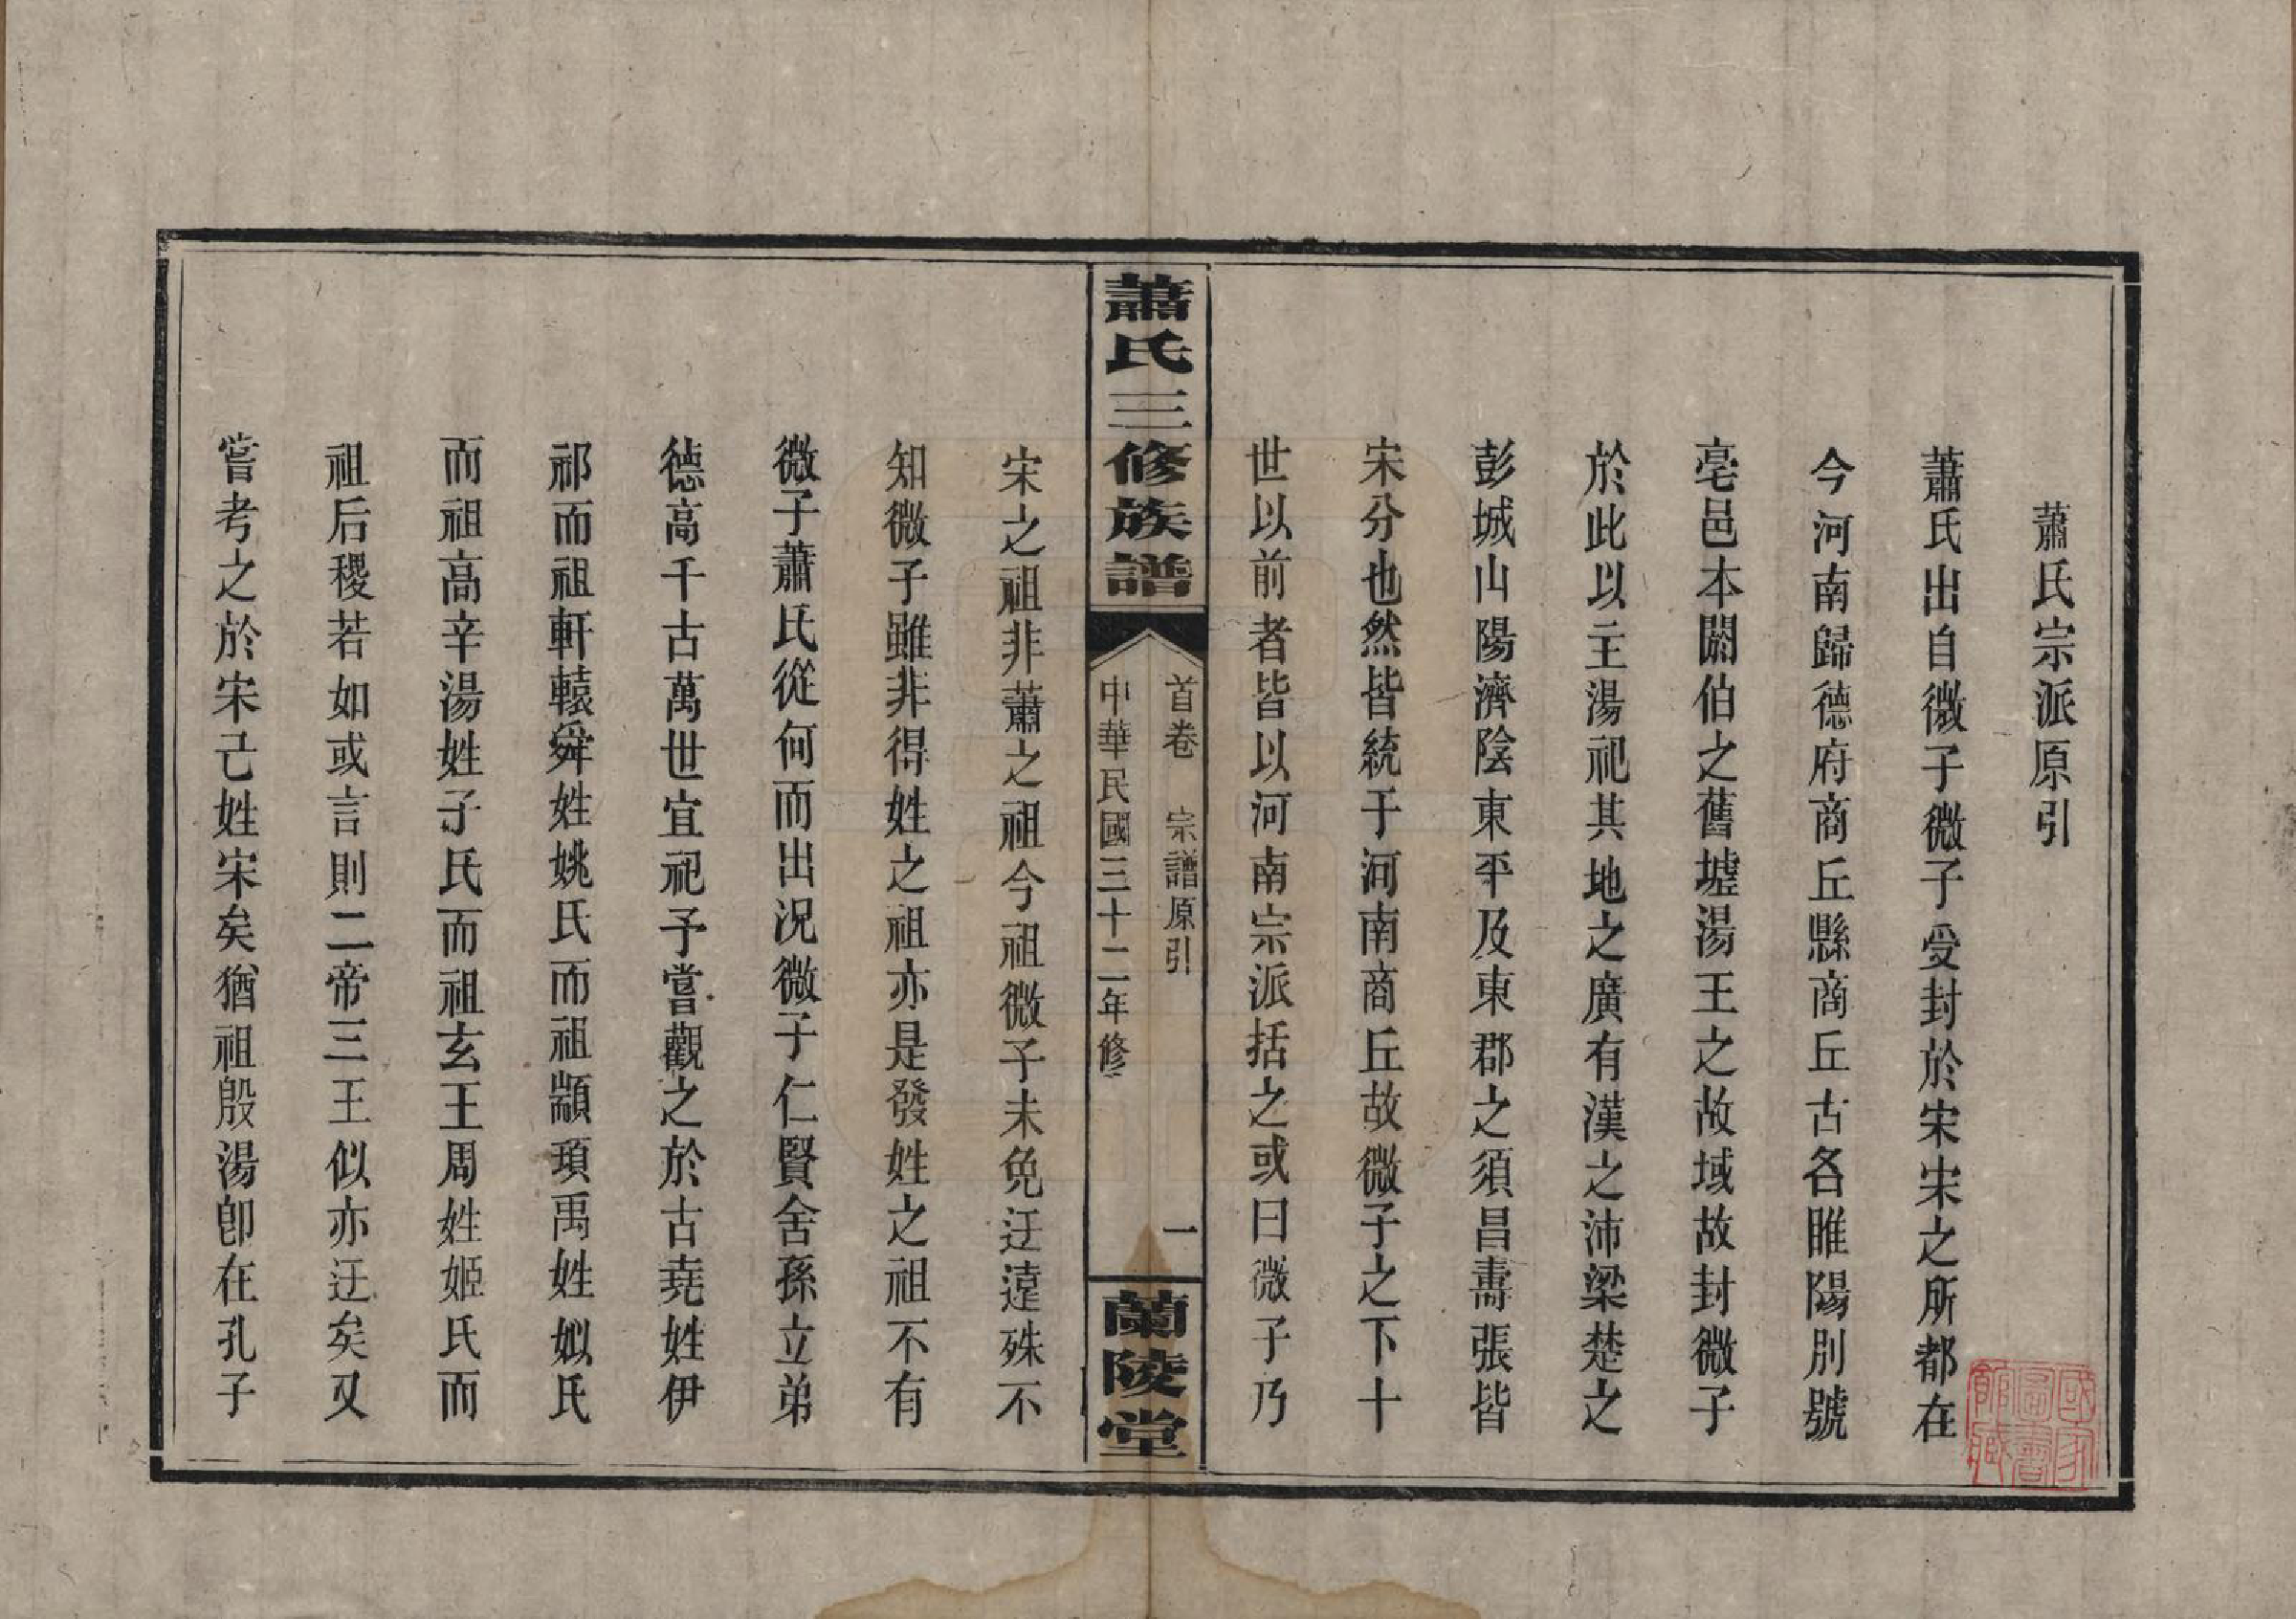 蕭氏宗派原引
蕭氏出自微子微子受封於宋宋之所都在
今河南歸德府商丘縣商丘古各睢陽別號
亳邑本閼伯之舊墟湯王之故域故封微子
於此以主湯祀其地之廣有漢之沛梁楚之
彭城山陽濟陰東平及東郡之須昌壽張皆
宋分也然皆統于河南商丘故微子之下十
世以前者皆以河南宗派括之或曰微子乃
蕭氏三修族譜
首卷 宗譜原引 一
中華民國三十二年修
蘭陵堂
宋之祖非蕭之祖今祖微子未免迂遠殊不
知微子雖非得姓之祖亦是發姓之祖不有
微子蕭氏從何而出况微子仁賢舍孫立弟
德高千古萬世宜祀予嘗觀之於古堯姓伊
祁而祖軒轅舜姓姚氏而祖顓頊禹姓姒氏
而祖高辛湯姓子氏而祖玄王周姓姬氏而
祖后稷若如或言則二帝三王似亦迂矣又
嘗考之於宋己姓宋矣猶祖殷湯卽在孔子
國家圖書館藏